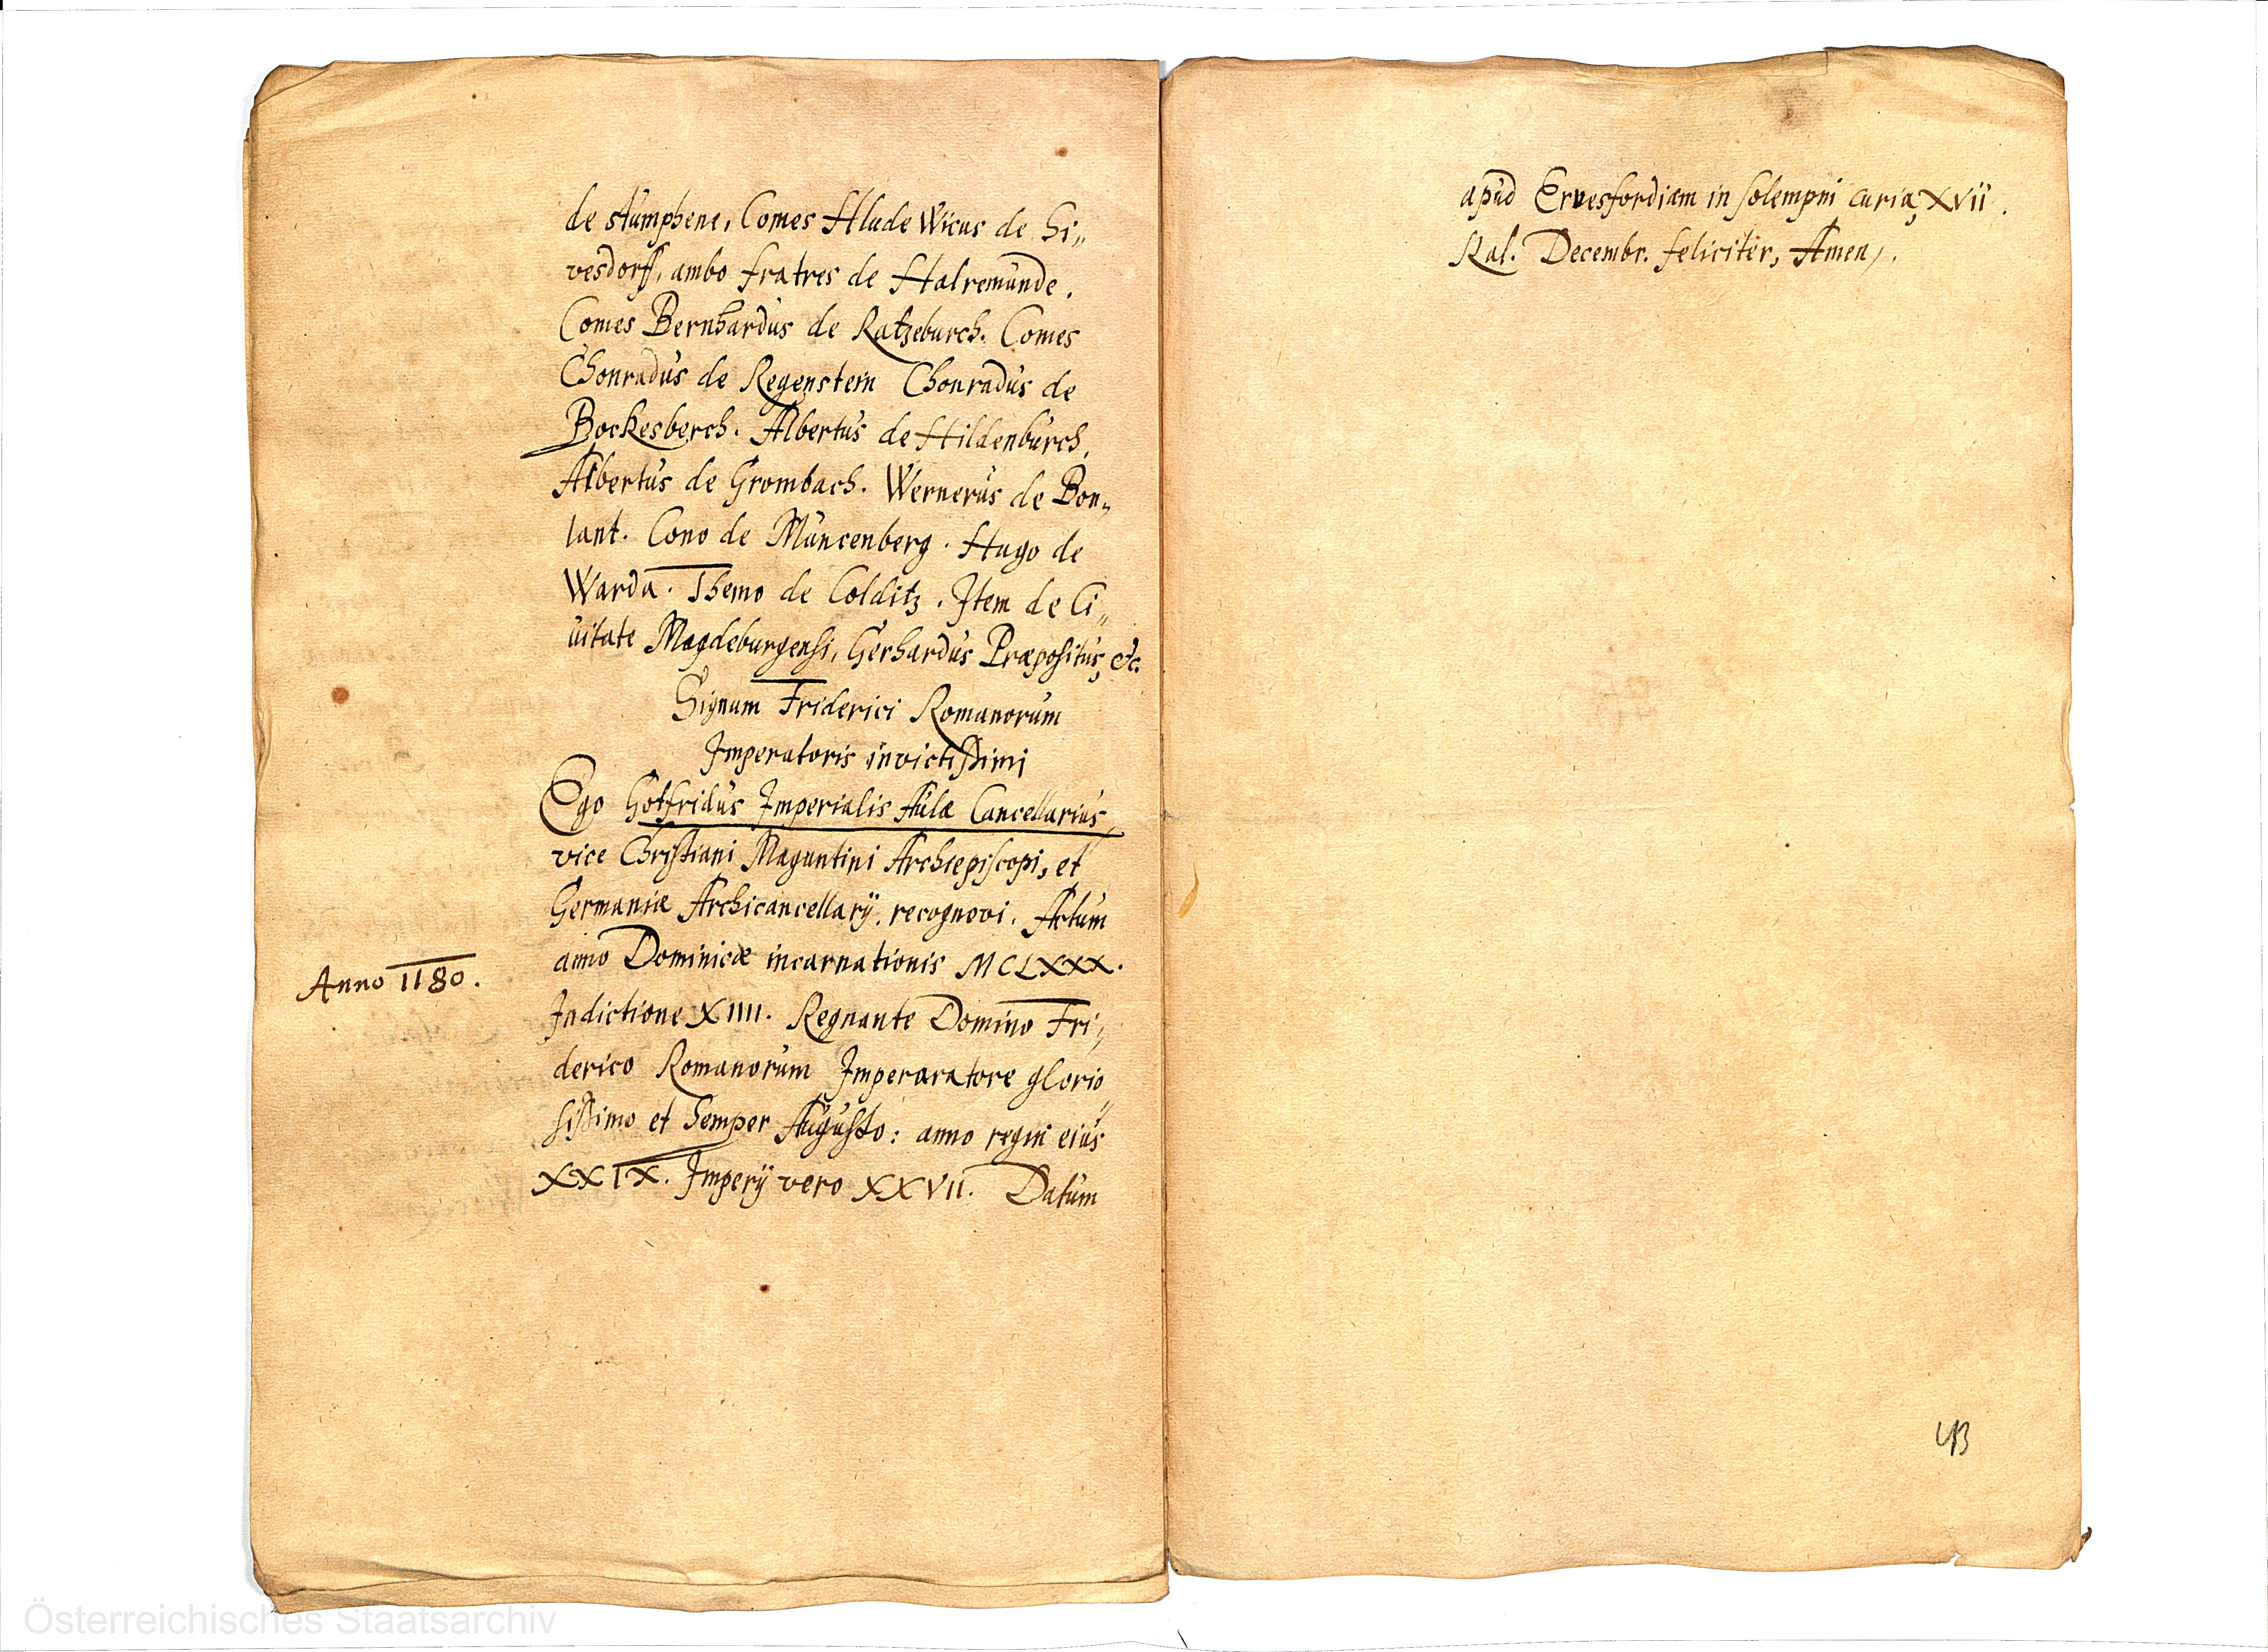 de stumphene, Comes Hlude Wicus de Si„
vesdorff, ambo fratres de Halremunde.
Comes Bernhardus de Ratzeburch. Comes
Chonradus de Regenstein Chonradus de
Bockesberch. Albertus de Hildenburch.
Albertus de Grombach. Wernerus de Bon„
lant. Cono de Muncenberg. Hugo de
Warda. Themo de Colditz. Item de Ci„
uitate Magdeburgensi, Gerhardus Præpositus, etc.
Signum Friderici Romanorum
Imperatoris invictißimi
Ego Gotfridus Imperialis Aulæ Cancellarius,
vice Christiani Maguntini Archiepiscopi, et
Germaniæ Archicancellarÿ, recognovi. Actum
Anno 1180.
anno Dominicæ incarnationis MCLXXX.
Indictione XIIII. Regnante Domino Fri„
derico Romanorum Imperaratore glorio„
sißimo et semper Augusto: anno regni eius
XXIX. Imperÿ vero XXVII. Datum
apud Ervesfordiam in solempni curia, XVII.
Kal. Decembr. feliciter, Amen.
Österreichisches Staatsarchiv